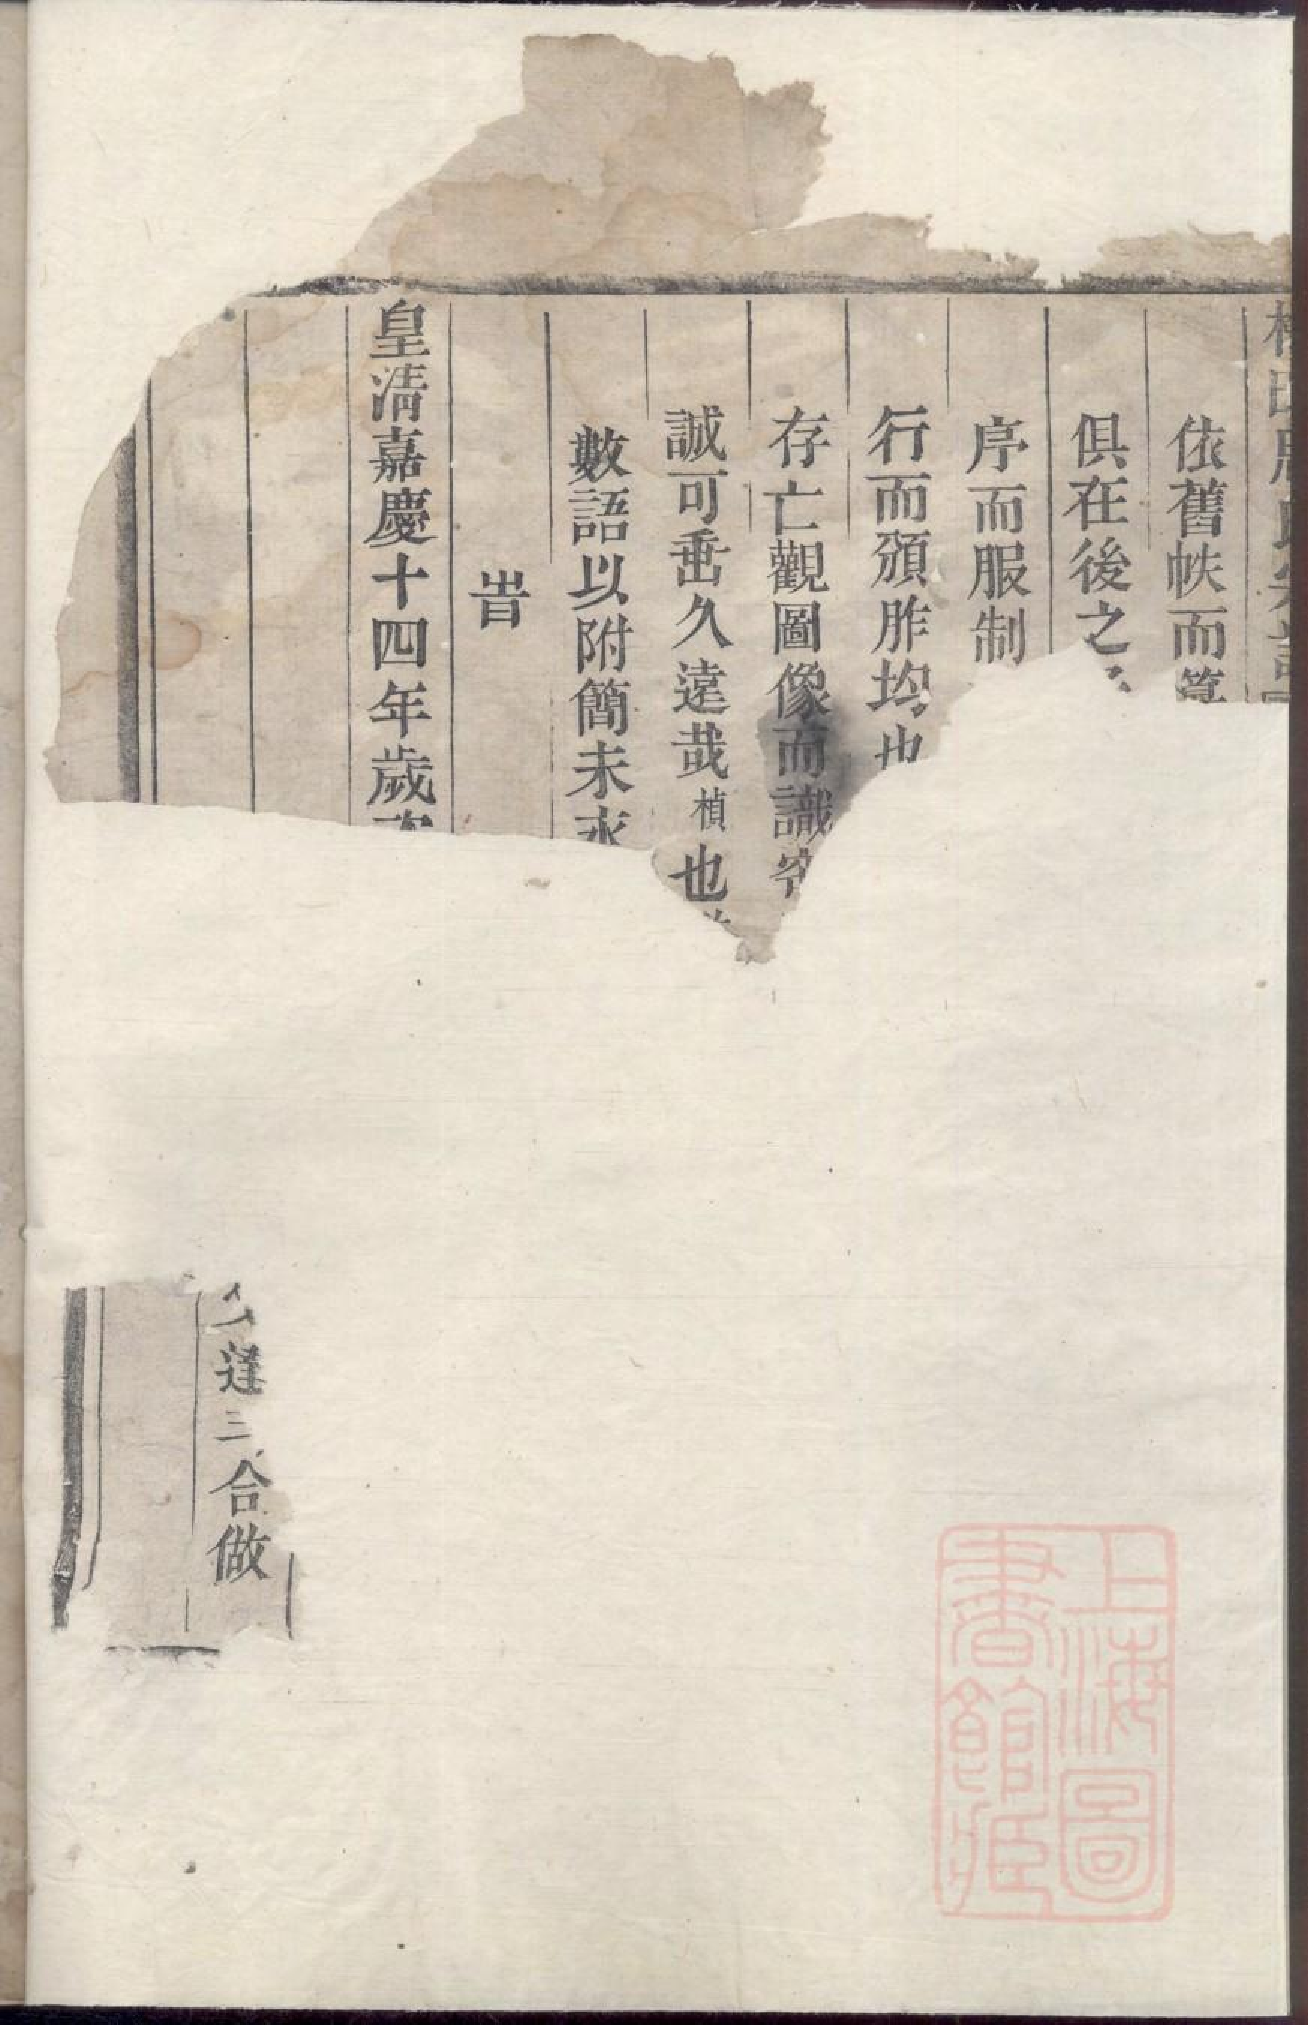 依舊帙而
俱在後之
序而服制
行而頒胙均也
存亡觀圖像而識
誠可垂久遠哉楨也
數語以附簡末
旹
皇清嘉慶十四年歲
達三合做
上海圖書館藏